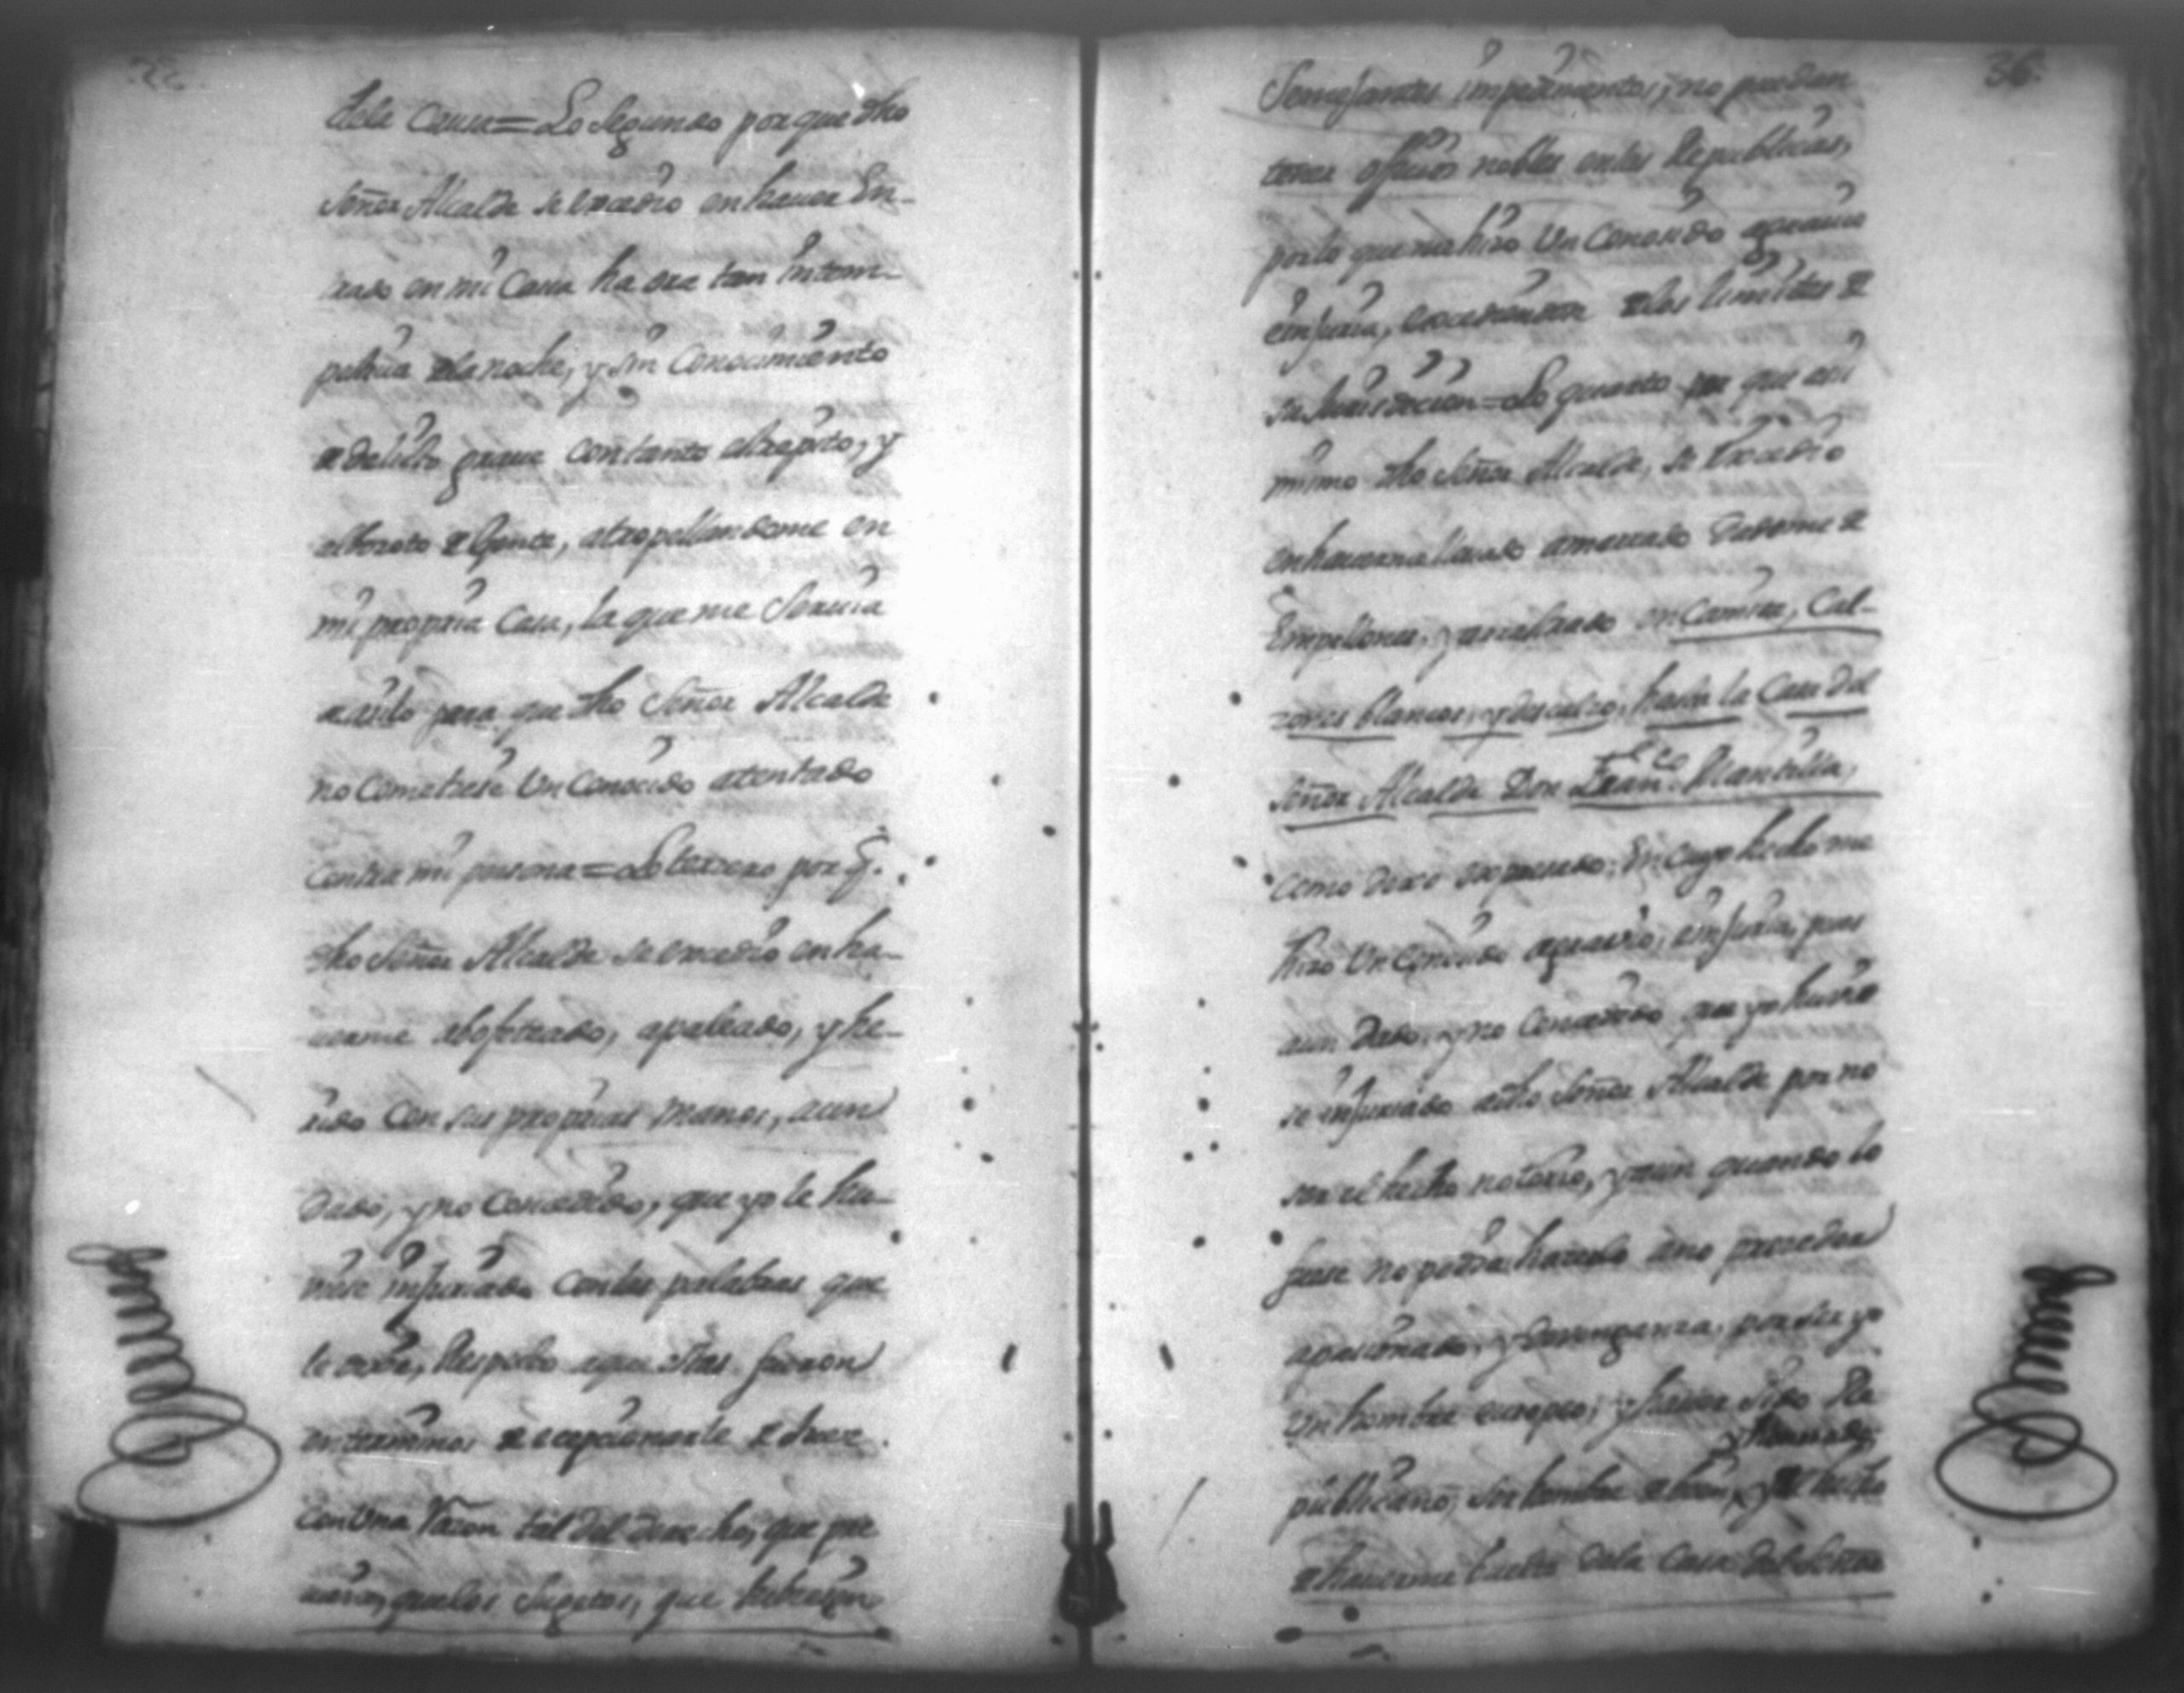 dela Causa = Lo Segundo por que dho
Señor Alcalde se excedio en hauer En-
trado en mi Casa ha ora tan intem-
pestiua dela noche, y sin Conocimiento
de delicto graue con tanto estrepito, y
alboroto de Gente, atropellandome en
mi propria Casa, la que me Seruia
de asilo para que dho Señor Alcalde
no cometiese Un Conocido atentado
contra mi persona = Lo tercero por q.
dho Señor Alcalde se excedio en ha-
uerme abofeteado, apaleado, y he-
rido con sus proprias manos, aun
dado, y no Concedido, que yo le hu-
uiese injuriado con las palabras que
le dixe, Respecto a que estas fueron
en terminos de excepcionarle de Juez
con Una Razon tal del derecho, que pre
uiene, que los Sugetos, que
36.
Semejantes impedimentos, no puedan
tener oficios nobles en las Republicas,
por lo que me hizo Un Conosido agrauio
e injuria, excediendose de los limites de
su Jurisdicion = Lo quarto por que asi
mismo dho Señor Alcalde, se Excedio
en hauerme lleuado amarrado dadome de
Empellones, y arrastrado en Camisa, Cal-
zones blancos, y descalzo, hasta la Casa del
Señor Alcalde Don Franco. Mantilla,
como dexo expresado; En cuyo hecho me
hizo Un Conosido agrauio, e injuria, pues
aun dado, y no Concedido que yo huuie
se injuriado a dho Señor Alcalde por no
ser el hecho notorio, y aun quando lo
fuese no podia hacerlo sino proceder
apasionado, y de venganza, por ser yo
Un hombre europeo, y hauer sido Re
publicano, ser hombre de bien, y Honrado, y de hecho
de hauerme buelto dela Casa del Señor